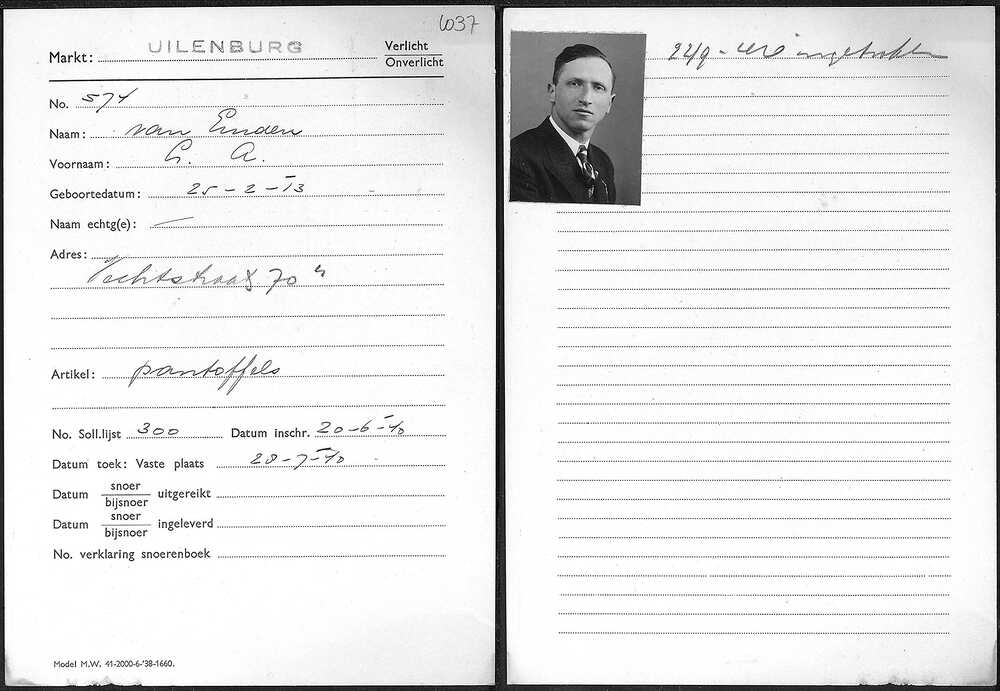 6037
UILENBURG
Markt:
Verlicht
Onverlicht
No. 574
Naam: van Emden
Voornaam: A.
Geboortedatum: 25-2-13
Naam echtg(e): —
Adres:
Vechtstraat 70
Artikel: pantoffels
No. Soll.lijst 300 Datum inschr. 20-6-40
Datum toek: Vaste plaats 20-7-40
Datum snoer/bijsnoer uitgereikt
Datum snoer/bijsnoer ingeleverd
No. verklaring snoerenboek
Model M.W. 41-2000-6-'38-1660.
22/9 - ingetrokken